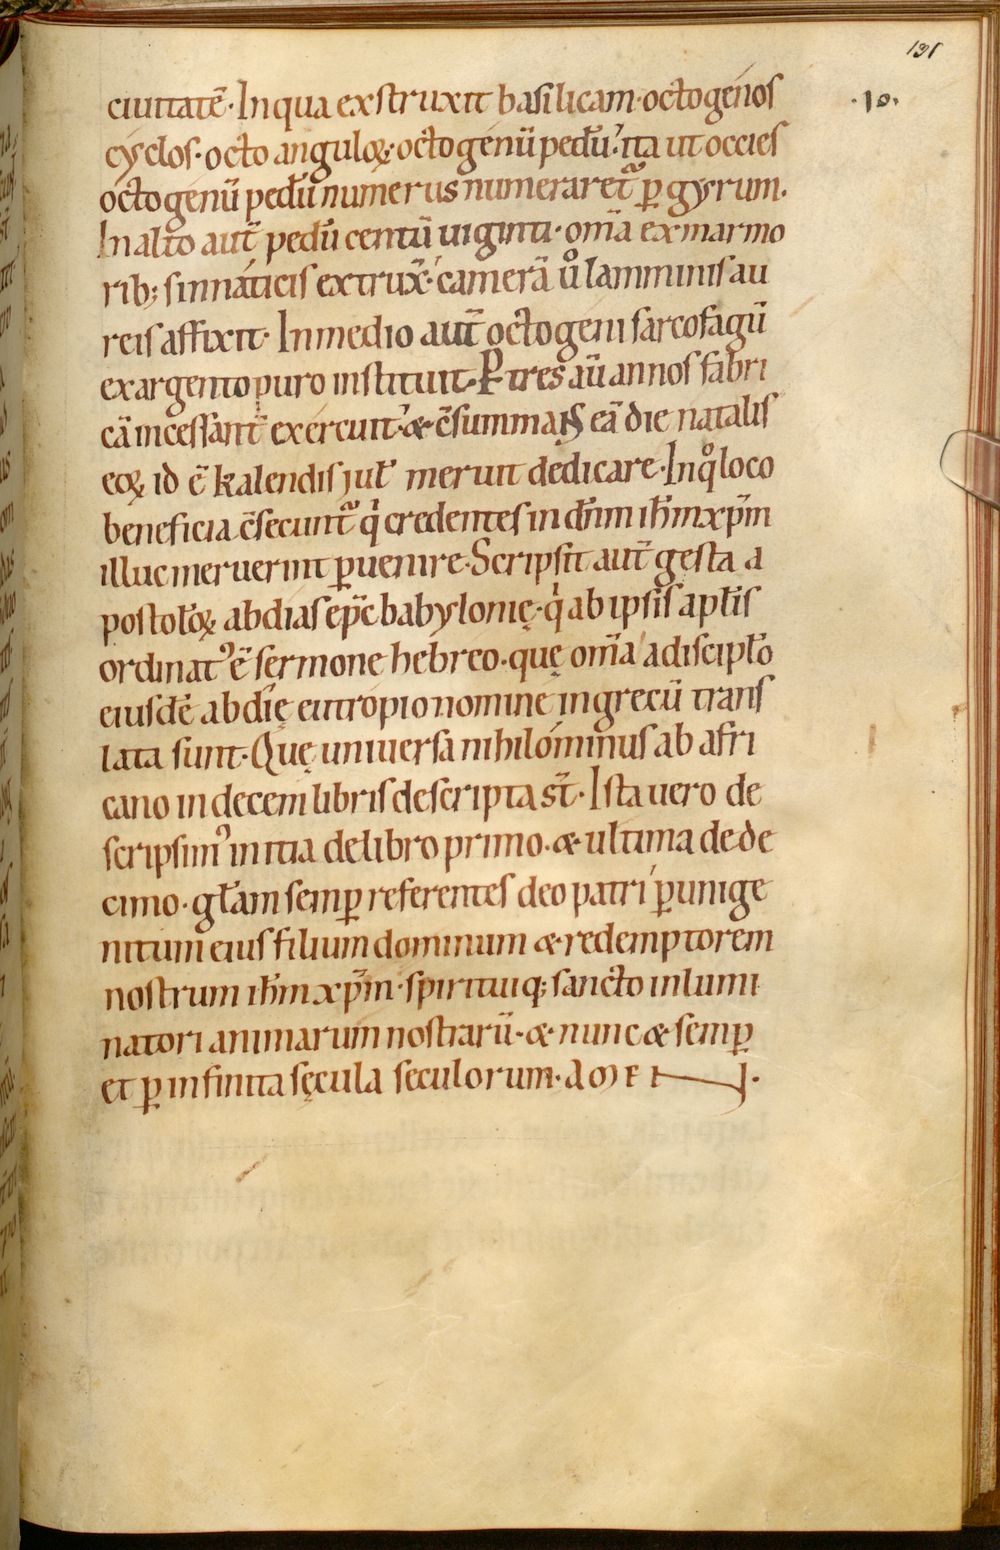 131
.10.
ciuitatē. In qua exstruxit basilicam octogenos
cyclos. octo anguloꝝ. octogenū pedū. ita ut occies
octogenū pedū numerus numeraret᷑ ꝑ gyrum.
In alto aut̄ pedū centū uiginti. om̄a ex marmo
rib; sinnaticis extrux̄. camerā ů lamminis au
reis affixit. In medio aut̄ octogeni sarcofagū
ex argento puro instituit. P tres aū annos fabri
cā incessant̄ exercuit. & c̄summaꞇis eā die natalis
eoꝝ id ē kalendis jul̄ meruit dedicare. In q̊ loco
beneficia c̄secunt᷑ qͥ credentes in dn̄m ih̄m xp̄m
illuc meruerint ꝑuenire. Scripsit aut̄ gesta a
postol̄oꝝ abdias ep̄c babylonię. qͥ ab ipsis apl̄is
ordinat᾿ ē sermone hebreo. quę om̄a a discipl̄o
eiusdē abdię eutropio nomine in grecū trans
lata sunt. Quę uniuersa nihilominus ab afri
cano in decem libris descripta st̄. Ista uero de
scripsim᾿ initia de libro primo. & ultima de de
cimo. gl̄am semꝑ referentes deo patri ꝑ unige
nitum eius filium dominum & redemptorem
nostrum ih̄m xp̄m. spirituiq; sancto inlumi
natori animarum nostrarū. & nunc & semꝑ
et ꝑ infinita sęcula seculorum. amen.